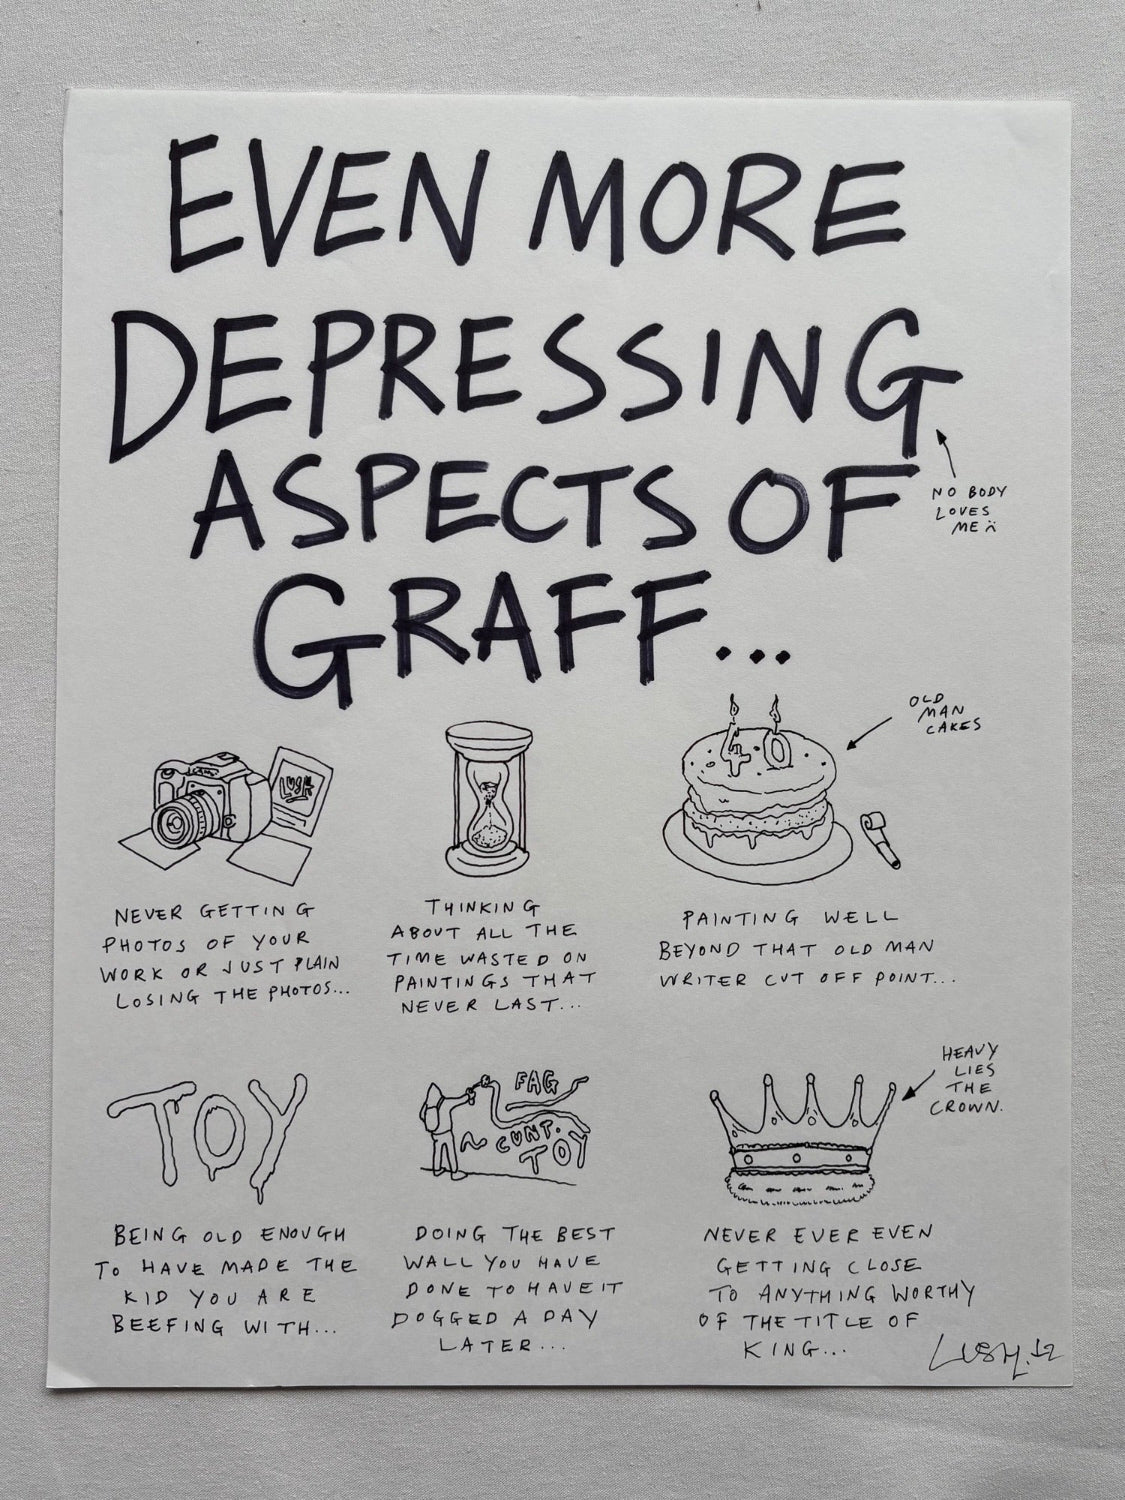 EVEN MORE
DEPRESSING
ASPECTS OF
GRAFF...
NO BODY
LOVES
ME
OLD
MAN
CAKES
LUSH
40
NEVER GETTING
PHOTOS OF YOUR
WORK OR JUST PLAIN
LOSING THE PHOTOS...
THINKING
ABOUT ALL THE
TIME WASTED ON
PAINTINGS THAT
NEVER LAST...
PAINTING WELL
BEYOND THAT OLD MAN
WRITER CUT OFF POINT...
TOY
BEING OLD ENOUGH
TO HAVE MADE THE
KID YOU ARE
BEEFING WITH...
FAG
CUNT.
TOY
DOING THE BEST
WALL YOU HAVE
DONE TO HAVE IT
DOGGED A DAY
LATER...
HEAVY
LIES
THE
CROWN.
NEVER EVER EVEN
GETTING CLOSE
TO ANYTHING WORTHY
OF THE TITLE OF
KING...
LUSH.12